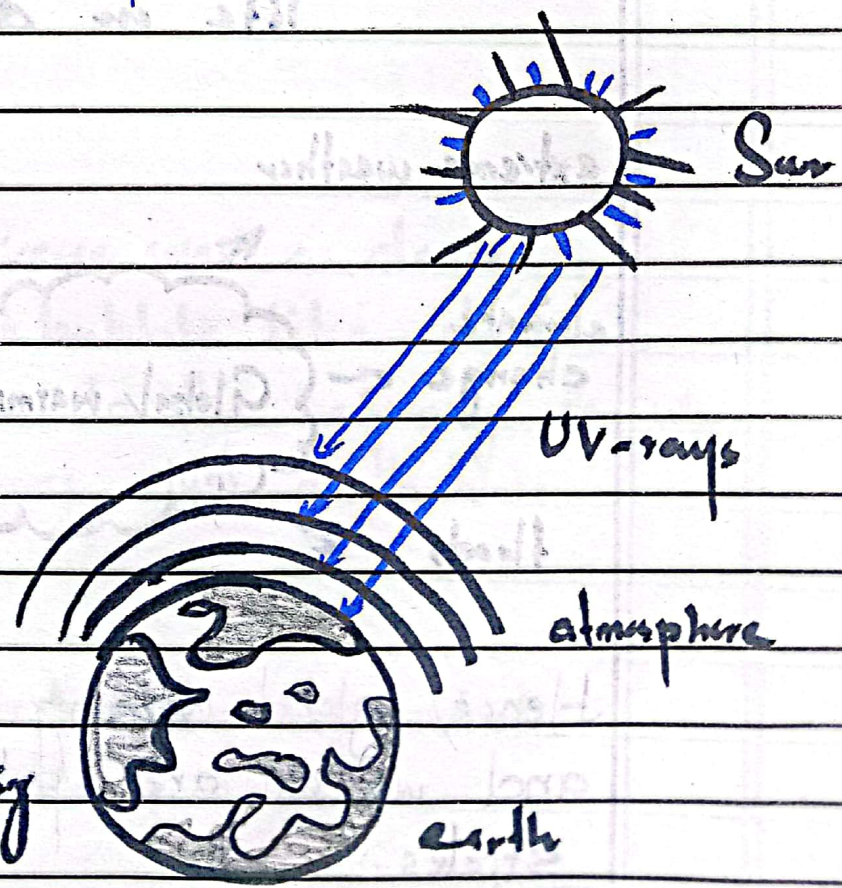 Sun
UV-rays
atmosphere
earth